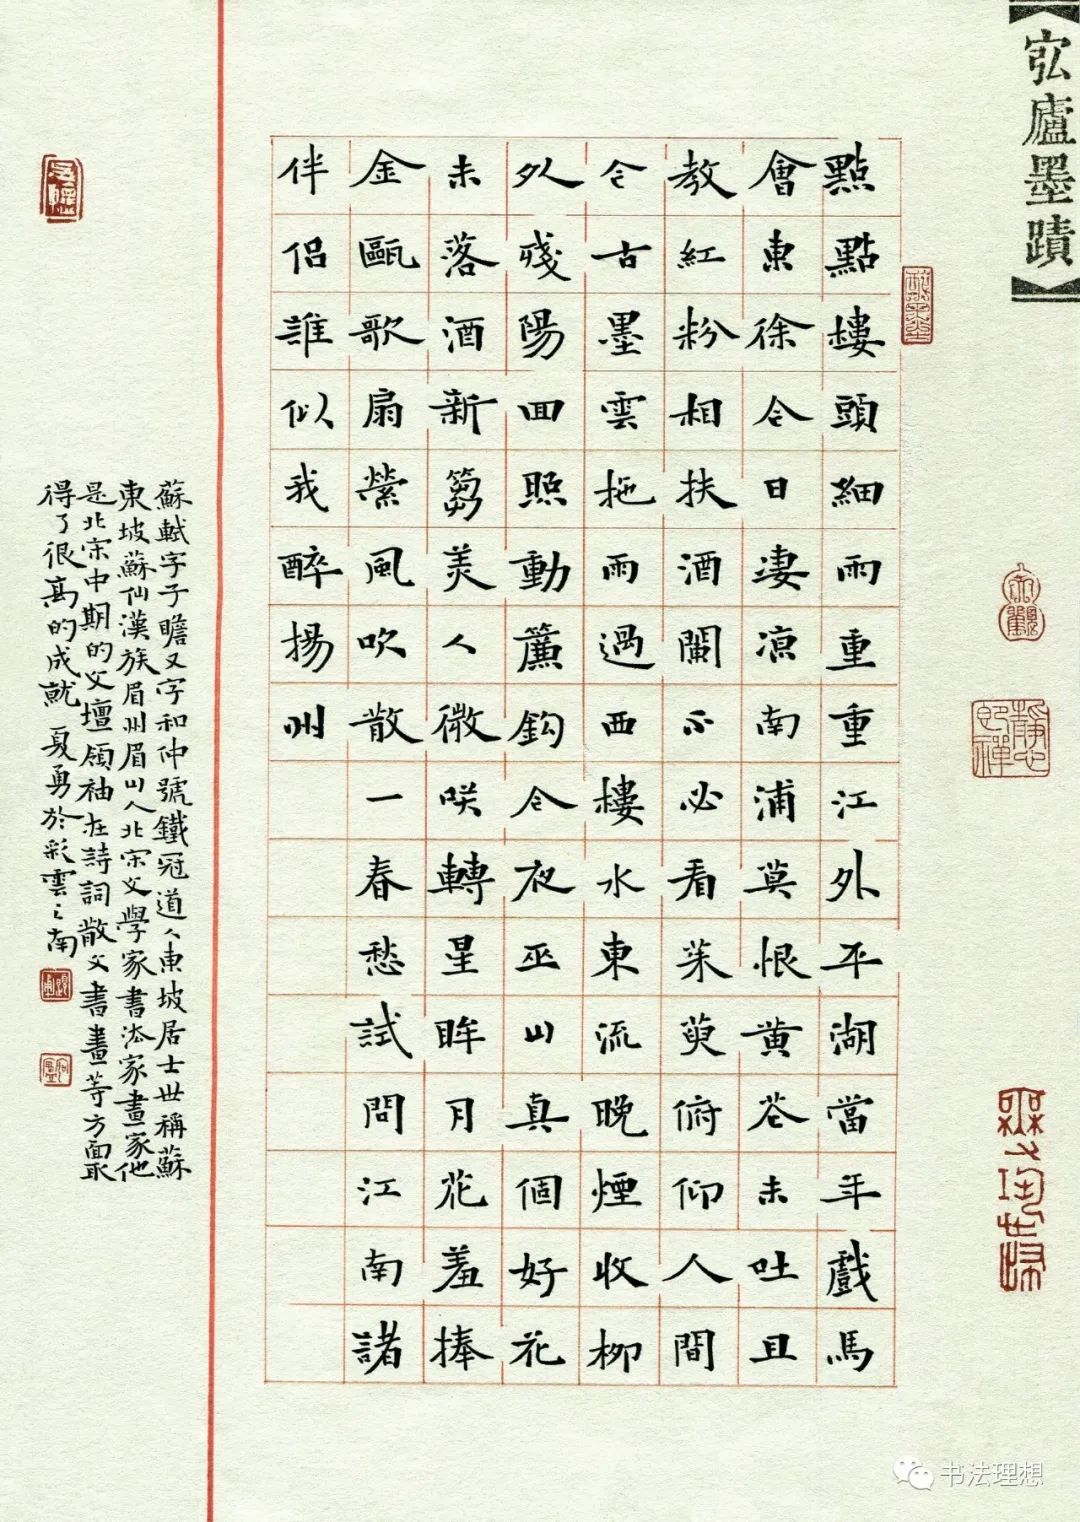 【宖廬墨蹟】
點點樓頭細雨重重江外平湖當年戲馬
會東徐今日凄凉南浦莫恨黄花未吐且
教紅粉相扶酒闌不必看茱萸俯仰人間
今古墨雲拖雨過西樓水東流晚煙收柳
外殘陽回照動簾鈎今夜巫山真個好花
未落酒新篘美人微咲轉星眸月花羞捧
金甌歌扇縈風吹散一春愁試問江南諸
伴侣誰似我醉揚州
蘇軾字子瞻又字和仲號鐵冠道人東坡居士世稱蘇
東坡蘇仙漢族眉州眉山人北宋文學家書法家畫家他
是北宋中期的文壇領袖在詩詞散文書畫等方面取
得了很高的成就 夏勇於彩雲之南
靜心即禪
书法理想